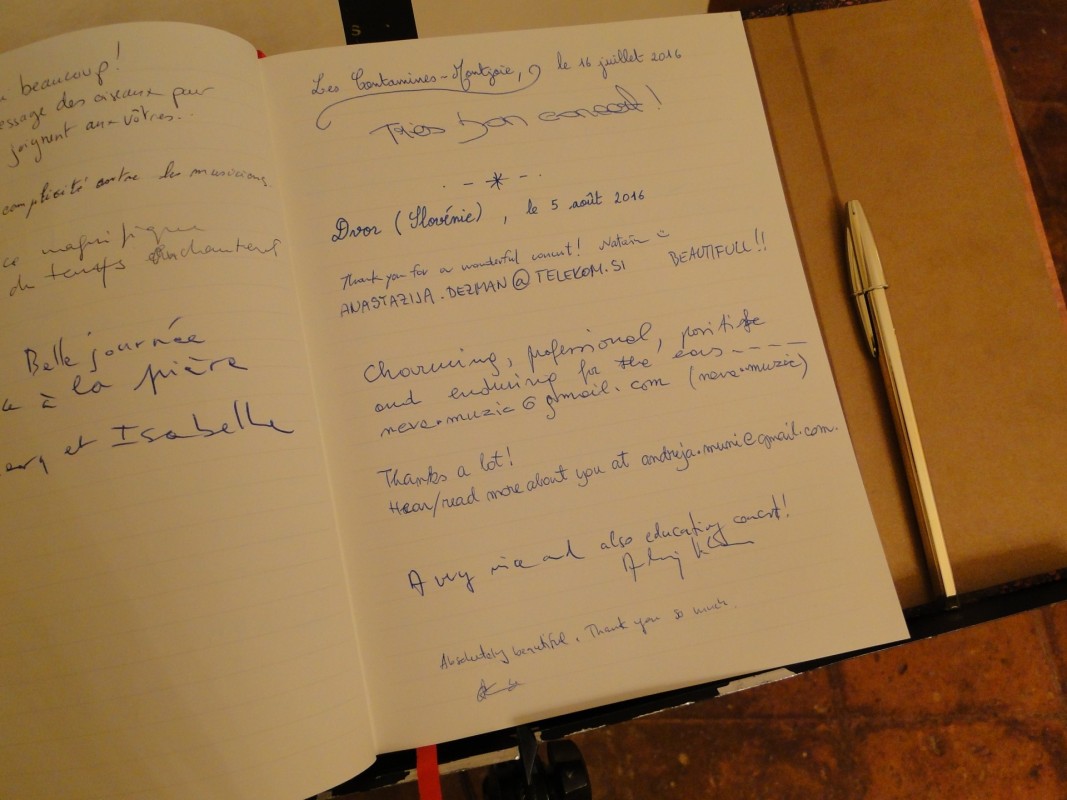 beaucoup!
essage des oiseaux pour
joignent aux vôtres...
complicité entre les musiciens.
ce magnifique
du temps enchanteur
Belle journée
à la pière
et Isabelle
S
Les Contamines-Montjoie, le 16 juillet 2016
Très bon concert!
Dvor (Slovénie), le 5 août 2016
Thank you for a wonderful concert!
BEAUTIFULL!!
ANASTAZIJA.DEZMAN@TELEKOM.SI
Charming, professional, positive
and enduring for the ears ----
neve.muzic@gmail.com (neve.muzic)
Thanks a lot!
Hear/read more about you at andreja.muni@gmail.com.
A very nice and also educating concert!
Absolutely beautiful. Thank you so much.